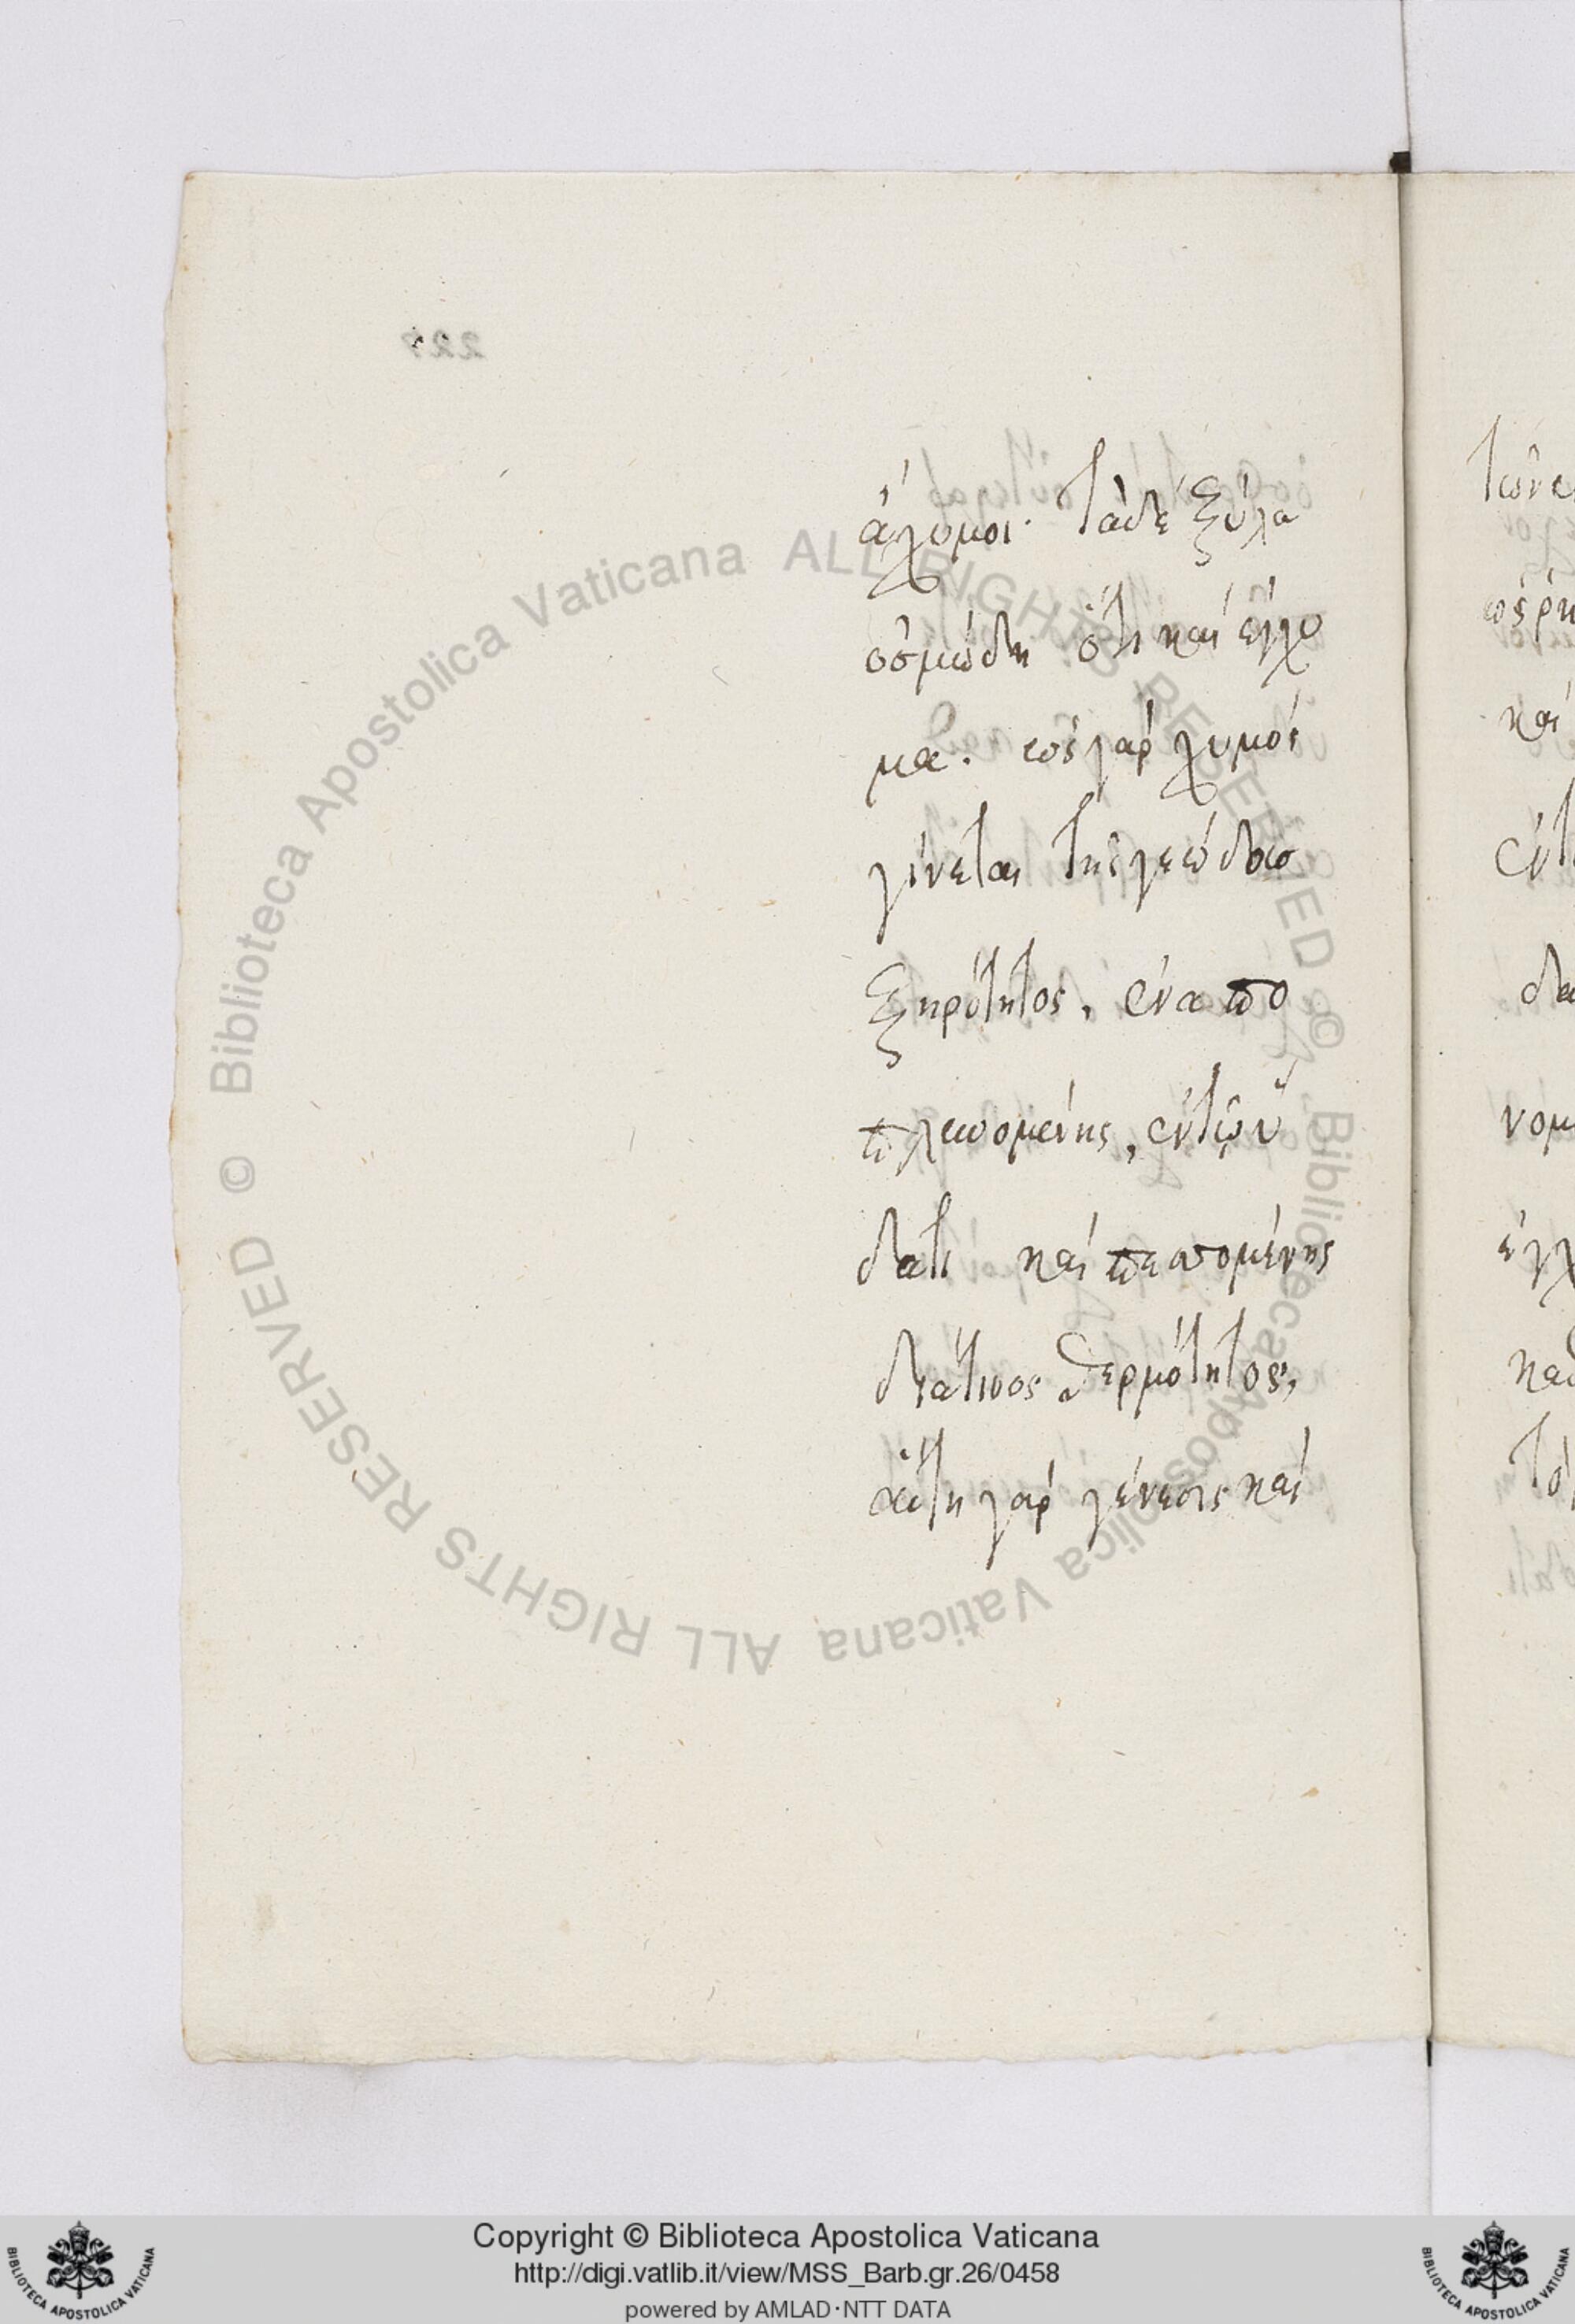 ἄχυμοι· τὰ δὲ ξύλα
ὀσμώδη ὅτι καὶ ἔγχυ
μα. ὡς γὰρ χυμὸς
γίνεται τῆς γεώδους
ξηρότητος, ἐναπο
πλεωομένης, ἐν τῷ ὕ
δατι καὶ πεπομένης
διά τινος θερμότητος,
αὕτη γὰρ γένεσις καὶ
© Biblioteca Apostolica Vaticana ALL RIGHTS RESERVED © Biblioteca Apostolica Vaticana ALL RIGHTS RESERVED
Copyright © Biblioteca Apostolica Vaticana
http://digi.vatlib.it/view/MSS_Barb.gr.26/0458
powered by AMLAD·NTT DATA
BIBLIOTECA APOSTOLICA VATICANA
BIBLIOTECA APOSTOLICA VATICANA